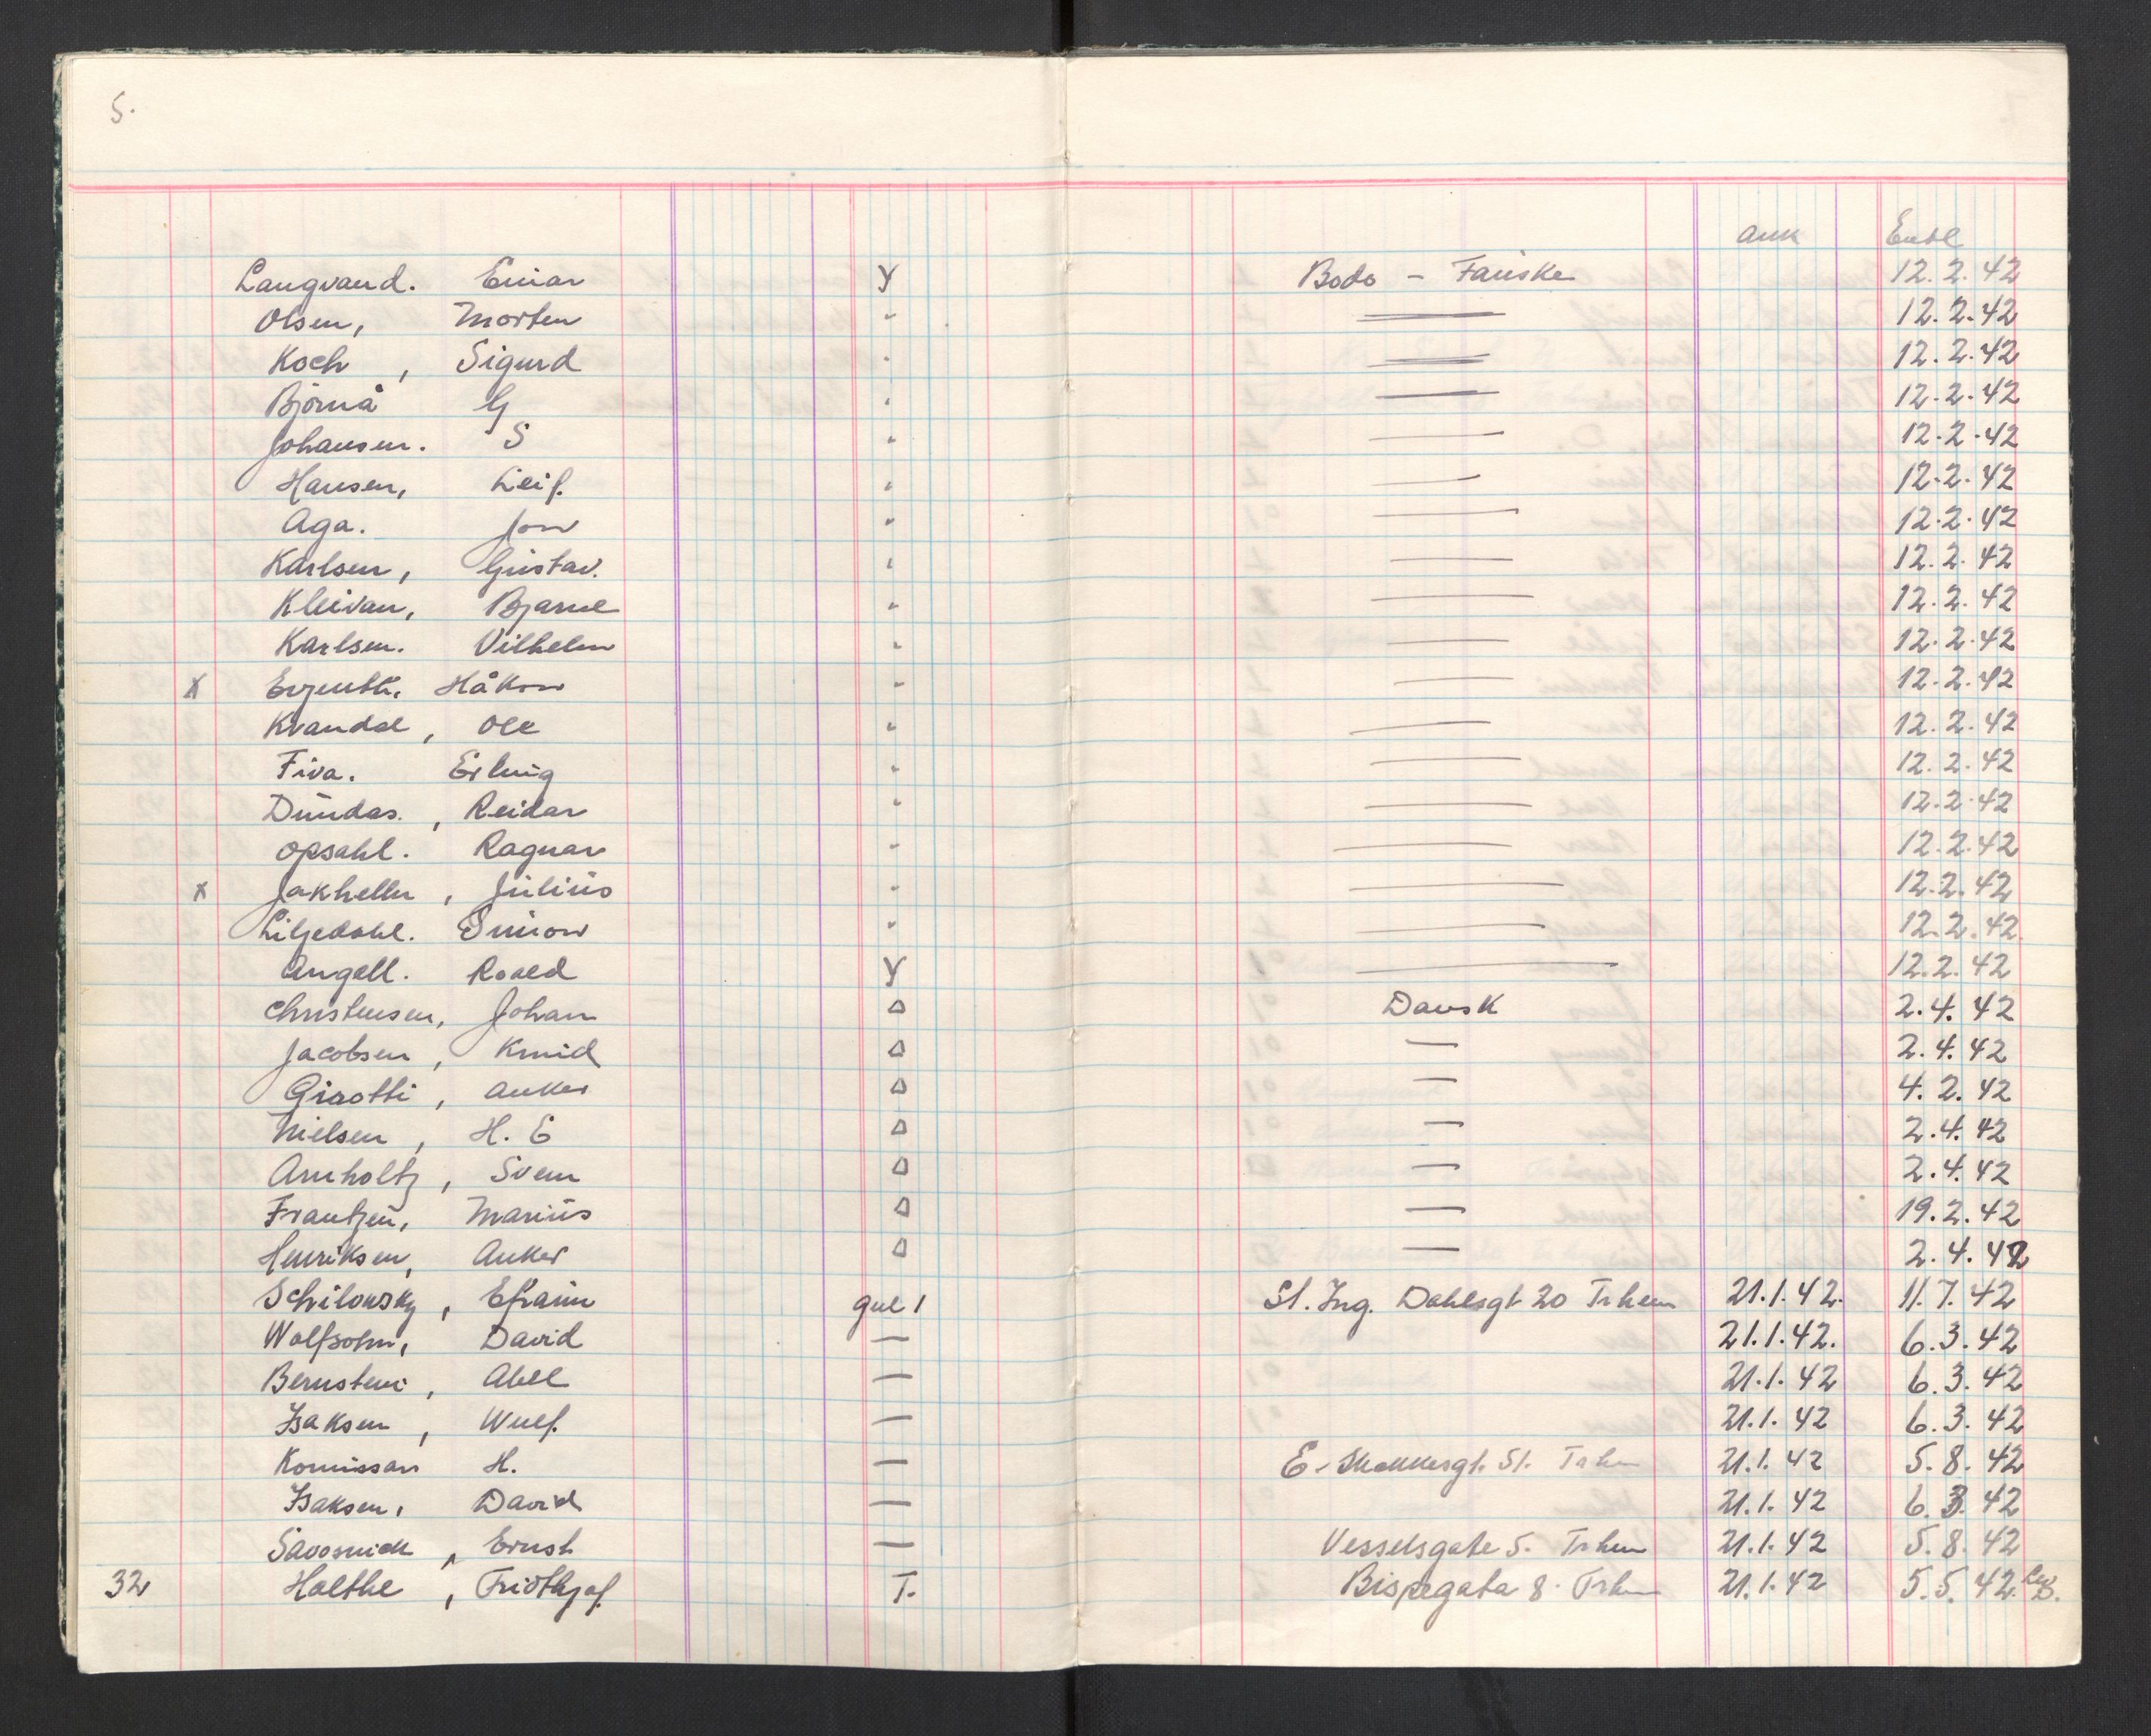 5.
Ank Entl
Langvand. Einar Y Bodo - Fauske 12.2.42
Olsen, Morten " — 12.2.42
Koch, Sigurd " — 12.2.42
Björnå G " — 12.2.42
Johansen. S " — 12.2.42
Hansen, Leif. " — 12.2.42
Aga. Jon " — 12.2.42
Karlsen, Gustav. " — 12.2.42
Kleivan, Bjarne " — 12.2.42
Karlsen. Vilhelm " — 12.2.42
x Håkon " — 12.2.42
Kvandal, Ole " — 12.2.42
Fiva. Erling " — 12.2.42
Dundas., Reidar " — 12.2.42
Opsahl. Ragnar " — 12.2.42
x Jakhelln, Julius " — 12.2.42
Liljedahl. Simon " — 12.2.42.
Angell. Roald Y — 12.2.42
Christensen, Johan Δ Dansk 2.4.42
Jacobsen, Knud Δ — 2.4.42
Giaotti, Anker Δ — 4.2.42
Nielsen, H. E Δ — 2.4.42
Arnholtz, Sven Δ — 2.4.42
Frantzen, Marius Δ — 19.2.42
Henriksen, Anker Δ — 2.4.42
Schilowsky, Efraim gul 1 St. Ing. Dahlsgt 20 Trhem 21.1.42. 11.7.42
Wolfsohn, David — 21.1.42. 6.3.42
Bernstein, Abel — 21.1.42 6.3.42
Isaksen, Wulf. — 21.1.42 6.3.42
Komissar H. — E. Skakkesgt. 51. Trhm 21.1.42 5.8.42
Isaksen, David — 21.1.42 6.3.42
Savosnick, Ernst — Vesselsgate 5. Trhem 21.1.42 5.8.42
32 Holthe, Fridthjof. T. Bispegata 8. Trhm 21.1.42 5.5.42.